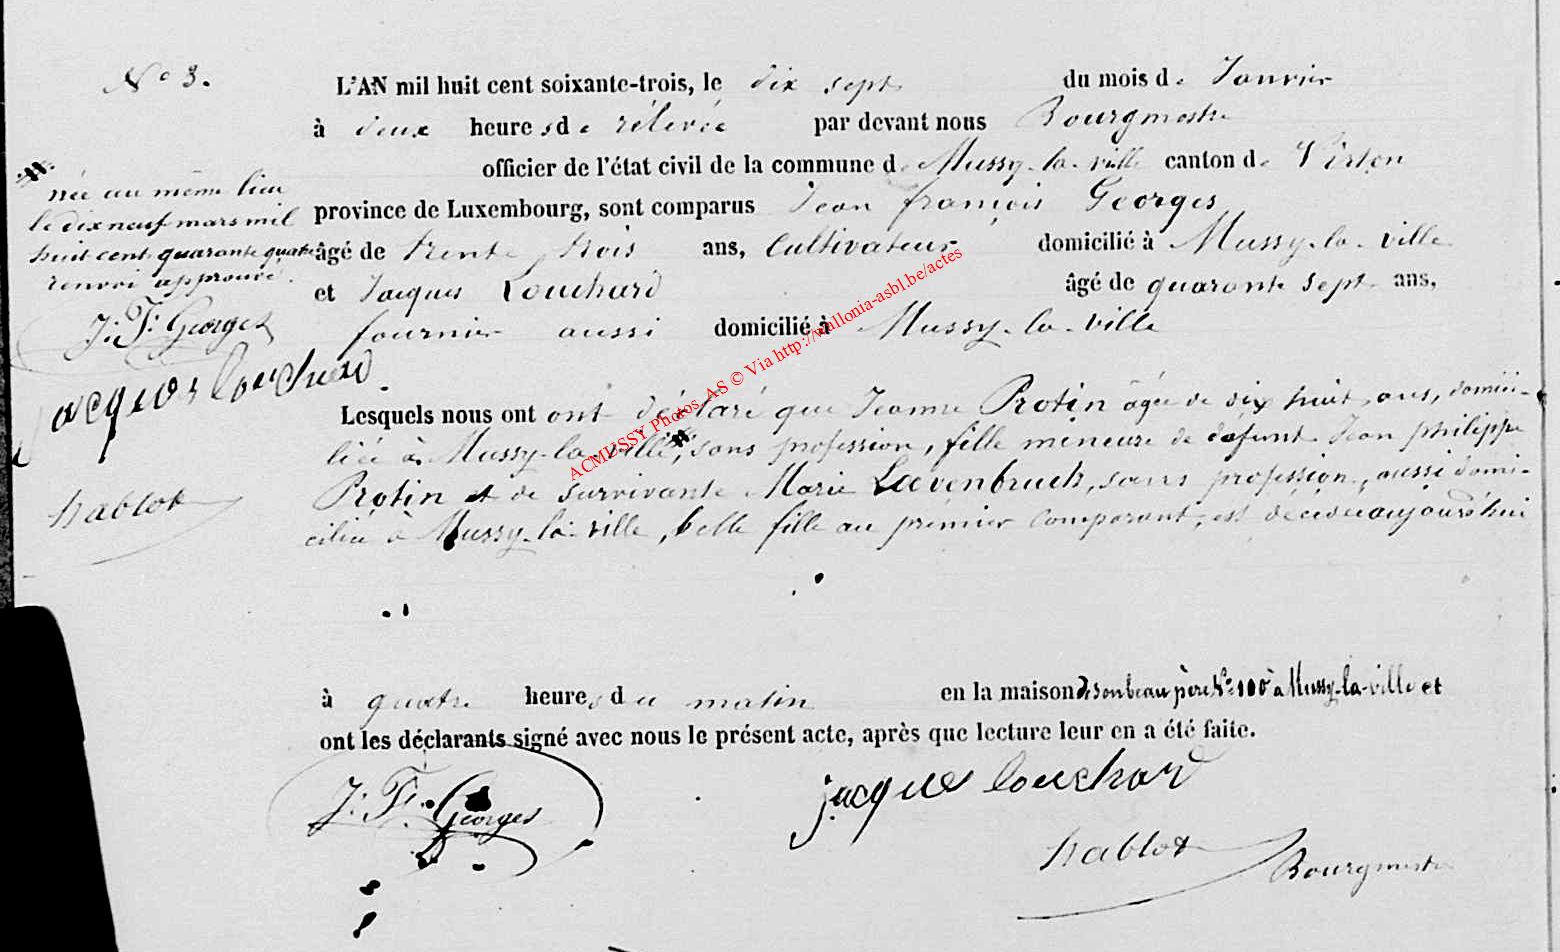 No 3.
L'AN mil huit cent soixante-trois, le dix sept du mois de Janvier
à deux heures de rélevée par devant nous Bourgmestre
officier de l'état civil de la commune de Mussy-la-ville canton de Virton
province de Luxembourg, sont comparus Jean françois Georges
âgé de trente trois ans, Cultivateur domicilié à Mussy-la-ville
et Jacques Louchard âgé de quarante sept ans,
fournier aussi domicilié à Mussy-la-ville
Lesquels nous ont ont déclaré que Jeanne Protin âgée de dix huit ans, domici-
liée à Mussy-la-ville, sans profession, fille mineure de défunt Jean philippe
Protin et de survivante Marie Laevenbruch, sans profession, aussi domi-
ciliée à Mussy-la-ville, belle fille au prémier comparant, est décédée aujourd'hui
à quatre heures du matin en la maison de son beau père No 100 à Mussy-la-ville et
ont les déclarants signé avec nous le présent acte, après que lecture leur en a été faite.
J: F: Georges
jacques louchard
hablot
Bourgmestre
née au même lieu
le dix neuf mars mil
huit cent quarante quatre
renvoi approuvé.
J: F: Georges
jacques louchard
hablot
ACMUSSY Photos AS © Via http://wallonia-asbl.be/actes